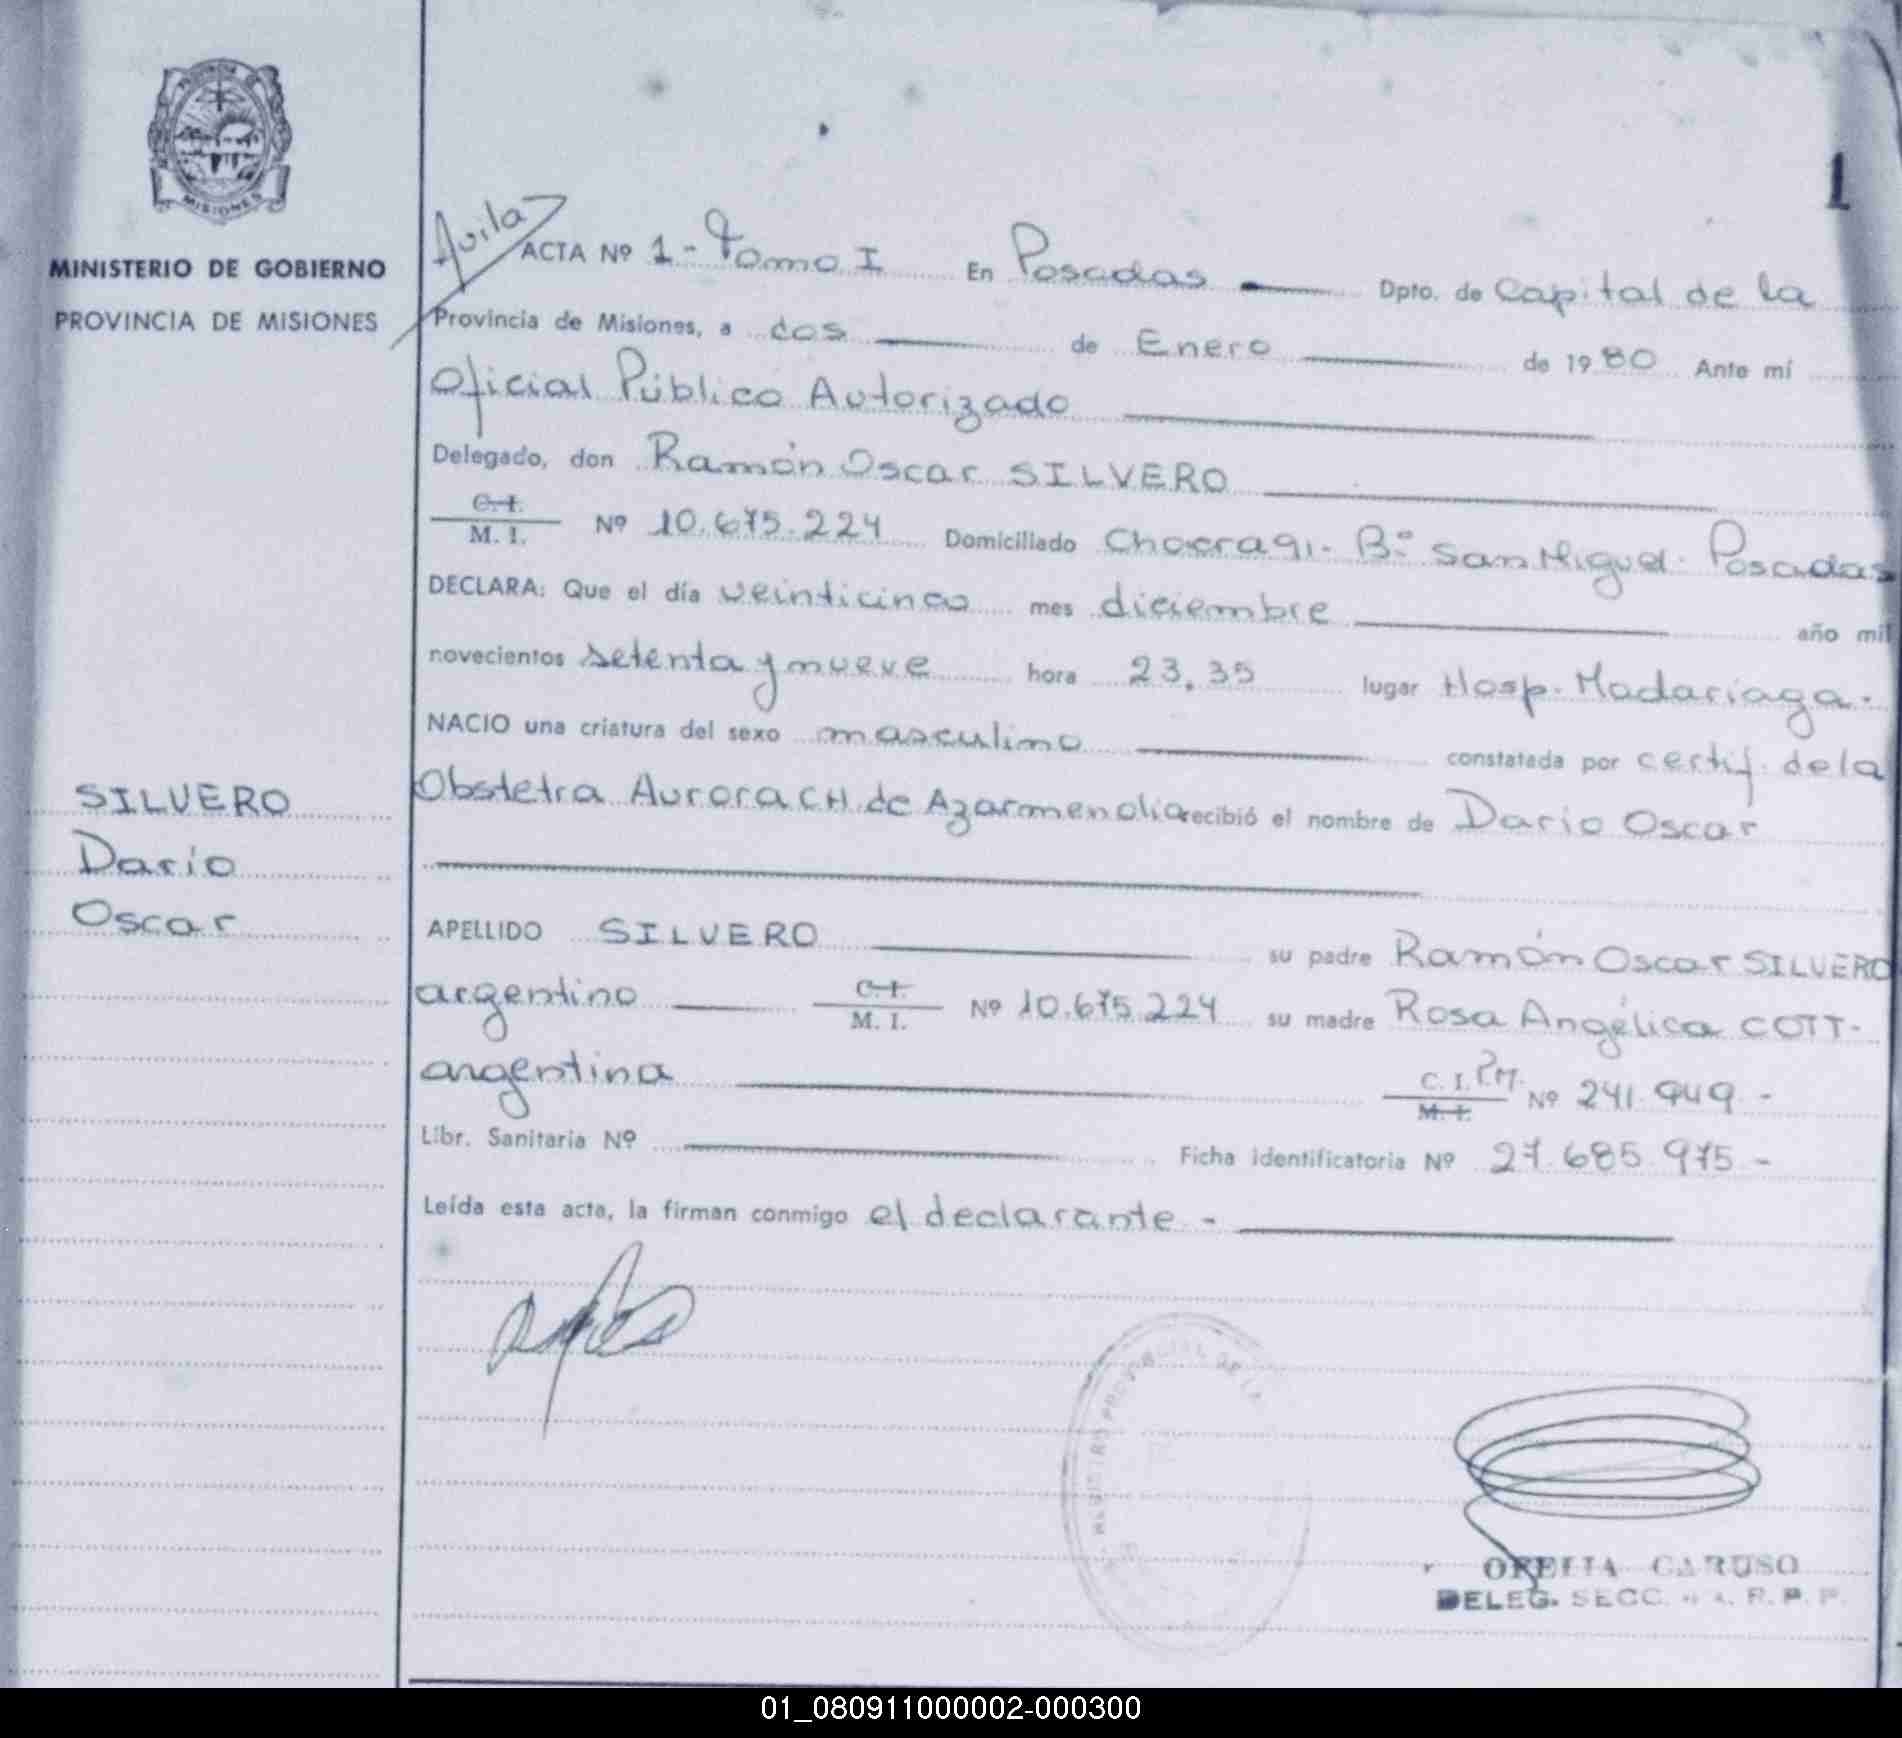 PROVINCIA DE
MISIONES
MINISTERIO DE GOBIERNO
PROVINCIA DE MISIONES
1
Avila
ACTA Nº 1 - Tomo I En Posadas Dpto. de Capital de la
Provincia de Misiones, a dos de Enero de 1980 Ante mí
Oficial Público Autorizado
Delegado, don Ramón Oscar SILVERO
C. I.
M. I. Nº 10.675.224 Domiciliado Chacra 91 - Bº San Miguel - Posadas
DECLARA: Que el día veinticinco mes diciembre año mil
novecientos setenta y nueve hora 23,35 lugar Hosp. Madariaga -
NACIO una criatura del sexo masculino constatada por certif. de la
Obstetra Aurora CH. de Azarmendia recibió el nombre de Dario Oscar
SILVERO
Dario
Oscar
APELLIDO SILVERO su padre Ramón Oscar SILVERO
argentino C. I. M. I. Nº 10.675.224 su madre Rosa Angélica COTT -
argentina C. I. P.M. M. I. Nº 241.949 -
Libr. Sanitaria Nº Ficha identificatoria Nº 27.685.975 -
Leída esta acta, la firman conmigo el declarante -
REGISTRO PROVINCIAL DE LA
OFELIA CARUSO
DELEG. SECC. R. P. P.
01_080911000002-000300